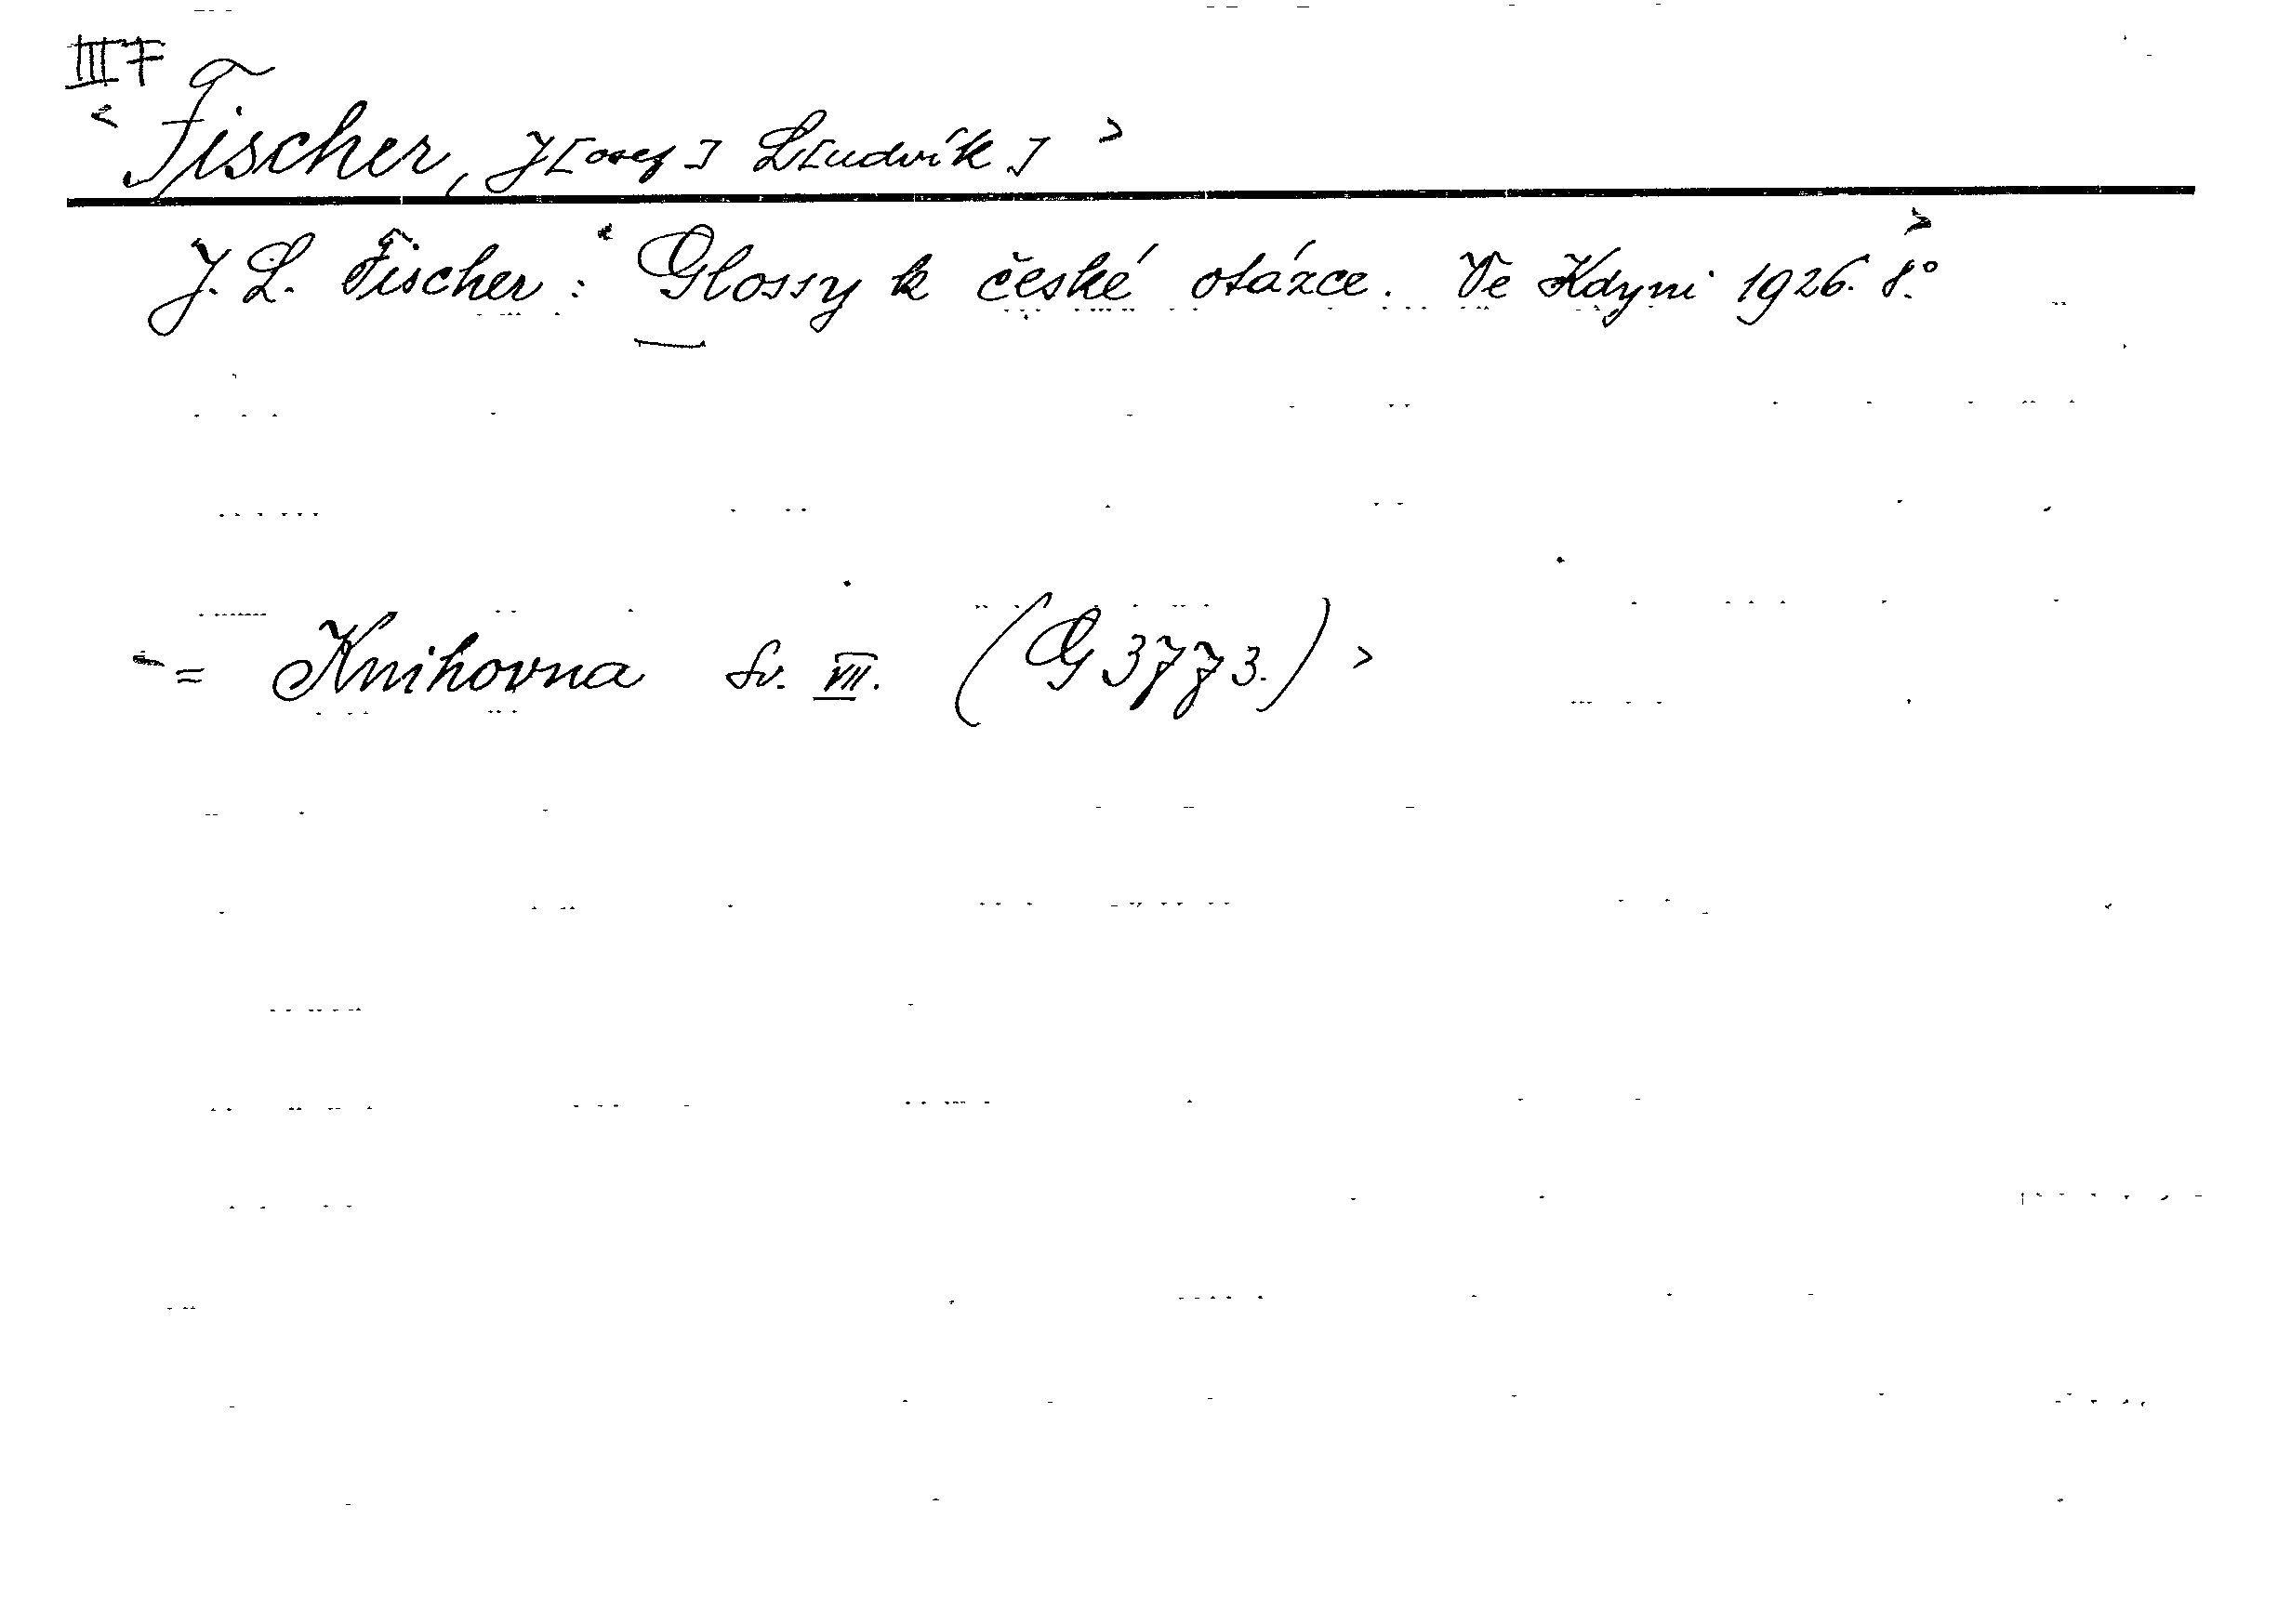 III F
< Fischer, J[osef] L[udvík] >
J. L. Fischer: < Glossy k české otázce. Ve Kdyni 1926. 8.° >
< = Knihovna sv. VII. (G 3773.) >